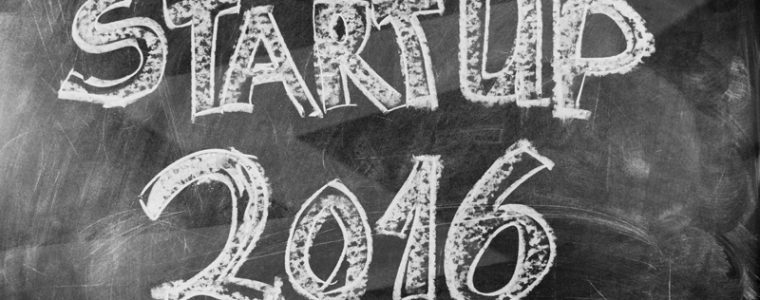 STARTUP
2016